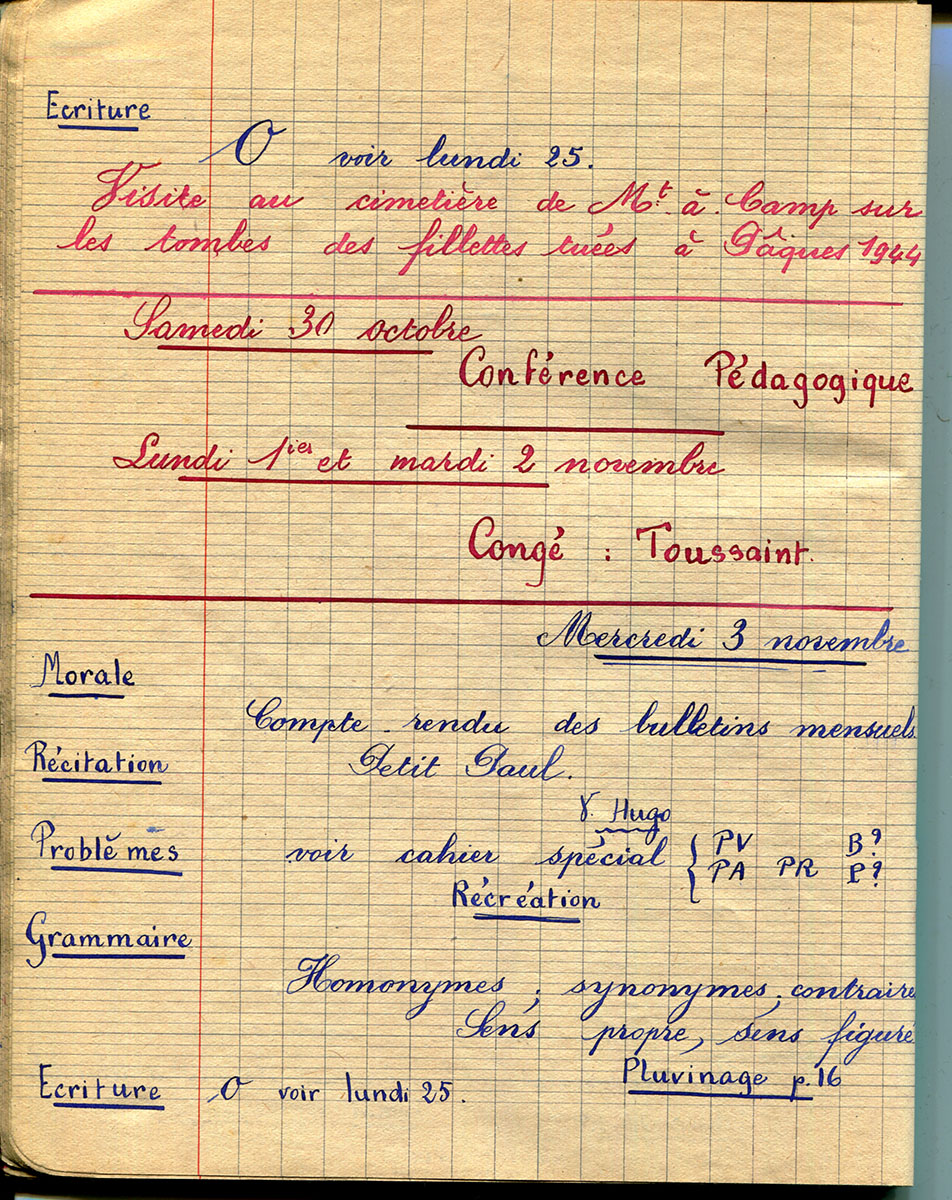 Ecriture
O voir lundi 25.
Visite au cimetière de Mt. à. Camp sur
les tombes des fillettes tuées à Pâques 1944
Samedi 30 octobre
Conférence Pédagogique
Lundi 1ier et mardi 2 novembre
Congé : Toussaint.
Mercredi 3 novembre
Morale
Compte-rendu des bulletins mensuels
Récitation Petit Paul.
V. Hugo
Problèmes voir cahier spécial { PV B?
PA PR P?
Récréation
Grammaire
Homonymes ; synonymes ; contraire
Sens propre, sens figuré
Pluvinage p.16
Ecriture O voir lundi 25.